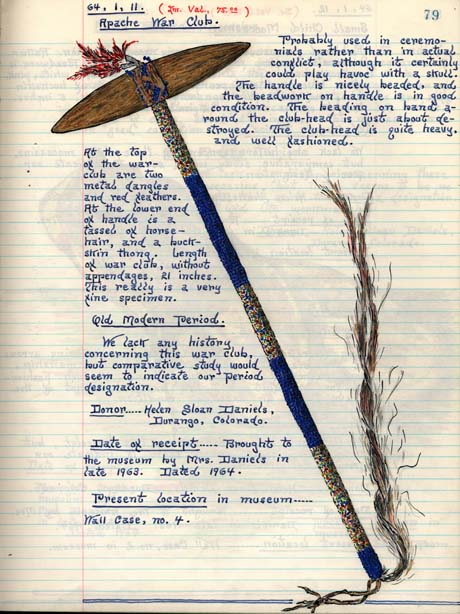 64, 1, 11. (In. Val., 75.00)
79
Apache War Club.
Probably used in ceremo-
nials rather than in actual
conflict, although it certainly
could play havoc with a skull.
The handle is nicely beaded, and
the beadwork on handle is in good
condition. The beading on band a-
round the club-head is just about de-
stroyed. The club-head is quite heavy,
and well fashioned.
At the top
of the war-
club are two
metal dangles
and red feathers.
At the lower end
of handle is a
tassel of horse-
hair, and a buck-
skin thong. Length
of war club, without
appendages, 21 inches.
This really is a very
fine specimen.
Old Modern Period.
We lack any history
concerning this war club,
but comparative study would
seem to indicate our period
designation.
Donor..... Helen Sloan Daniels,
Durango, Colorado.
Date of receipt..... Brought to
the museum by Mrs. Daniels in
late 1963. Dated 1964.
Present location in museum.....
Wall Case, no. 4.